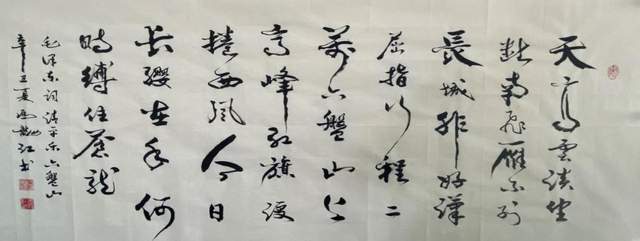 天高雲淡望
断南飛雁不到
長城非好漢
屈指行程二
萬六盤山上
高峰红旗漫
捲西風今日
长缨在手何
時縛住蒼龍
毛泽东词清平乐六盤山
辛丑夏江书